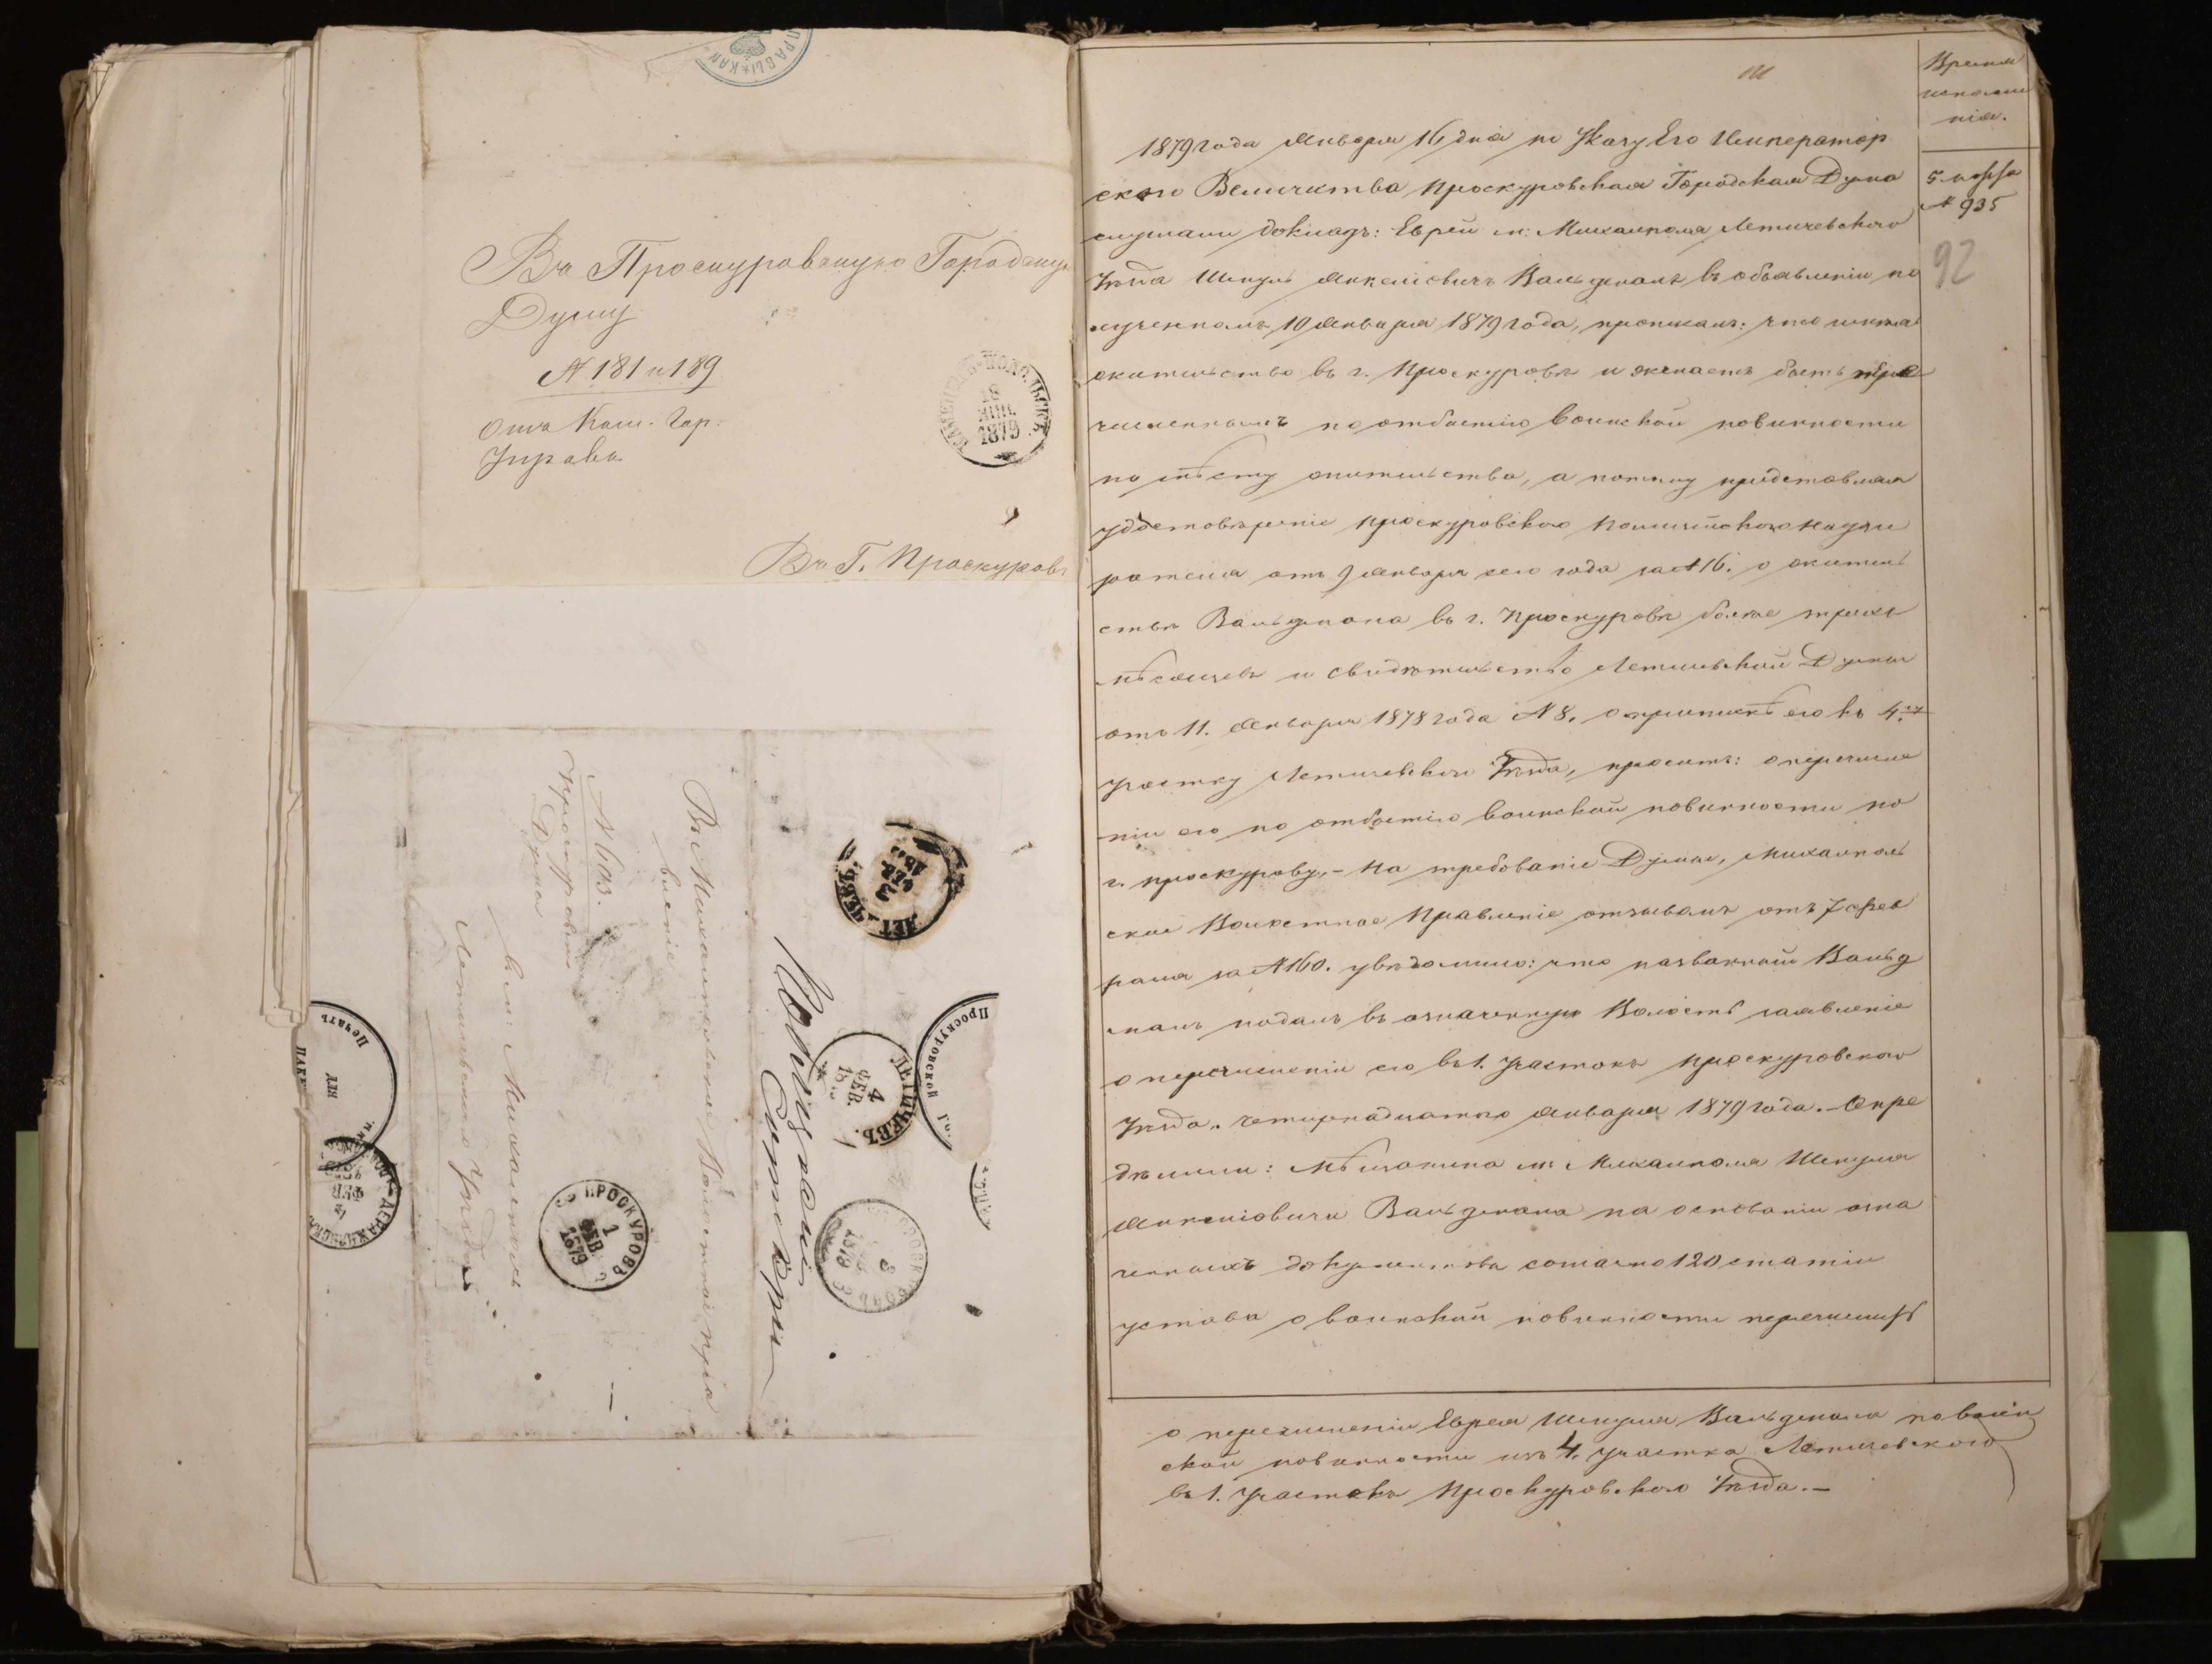 Въ Проскуровскую Городскую
Думу
№ 181 и 189
Отъ Кам. Гор.
Управы
Въ Г. Проскуровъ
КАМЕНЕЦЪ-ПОДОЛЬСКЪ
18
1879
Въ Михалпольское Волостное Пра
вленіе
№ 603.
Проскуровская
Дума
въ м: Михалполь
Летичевскаго Уѣзда
ЛЕТИЧЕВЪ
4
ФЕВ.
ПРОСКУРОВЪ
1
ФЕВ
1879
Проскуровской Го
Печать
для
Время
исполне
нія.
5 марта
№ 935
92
1879 года Января 16 дня по Указу Его Император
скаго Величества Проскуровская Городская Дума
слушали докладъ: Еврей м: Михалполя Летичевскаго
Уѣзда Шмуль Янкелевичъ Вальдманъ въ объявленіи по
лученномъ 10 Января 1879 года, прописалъ: что имѣя
жительство въ г. Проскуровѣ и желаетъ быть пере
численнымъ по отбытію воинской повинности
по мѣсту жительства, а потому представляя
удостовѣреніе Проскуровскаго Полицейскаго Надзи
рателя отъ 9 Января сего года за № 16. о житель
ствѣ Вальдмана въ г. Проскуровѣ болѣе трехъ
мѣсяцевъ и свидѣтельство Летичевской Думы
отъ 11. Января 1878 года № 8. о припискѣ его къ 4.му
участку Летичевскаго Уѣзда, проситъ: о перечисле
ніи его по отбытію воинской повинности по
г. Проскурову,- На требованіе Думы, Михалполь
ское Волостное Правленіе отзывомъ отъ 7 Фев
раля за № 160. увѣдомило: что названный Вальд
манъ подалъ въ означенную Волость заявленіе
о перечисленіи его въ 1. Участокъ Проскуровскаго
Уѣзда. четырнадцатаго Января 1879 года.- Опре
дѣлили: Мѣщанина м: Михалполя Шмуля
Янкеліовича Вальдмана на основаніи озна
ченныхъ документовъ согласно 120 статіи
устава о воинской повинности перечислить
о перечисленіи Еврея Шмуля Вальдмана по воин
ской повинности изъ 4. участка Летичевскаго
въ 1. Участокъ Проскуровскаго Уѣзда.-